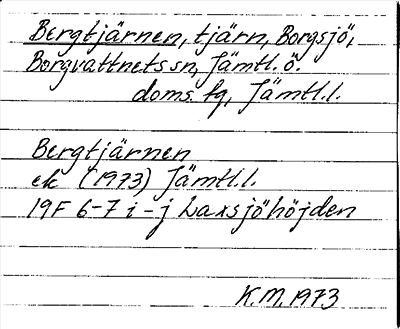 Bergtjärnen, tjärn, Borgsjö,
Borgvattnets sn, Jämtl. ö.
doms. fg, Jämtl.l.
Bergtjärnen
ek (1973) Jämtl.l.
19F 6-7 i-j Laxsjöhöjden
K.M. 1973